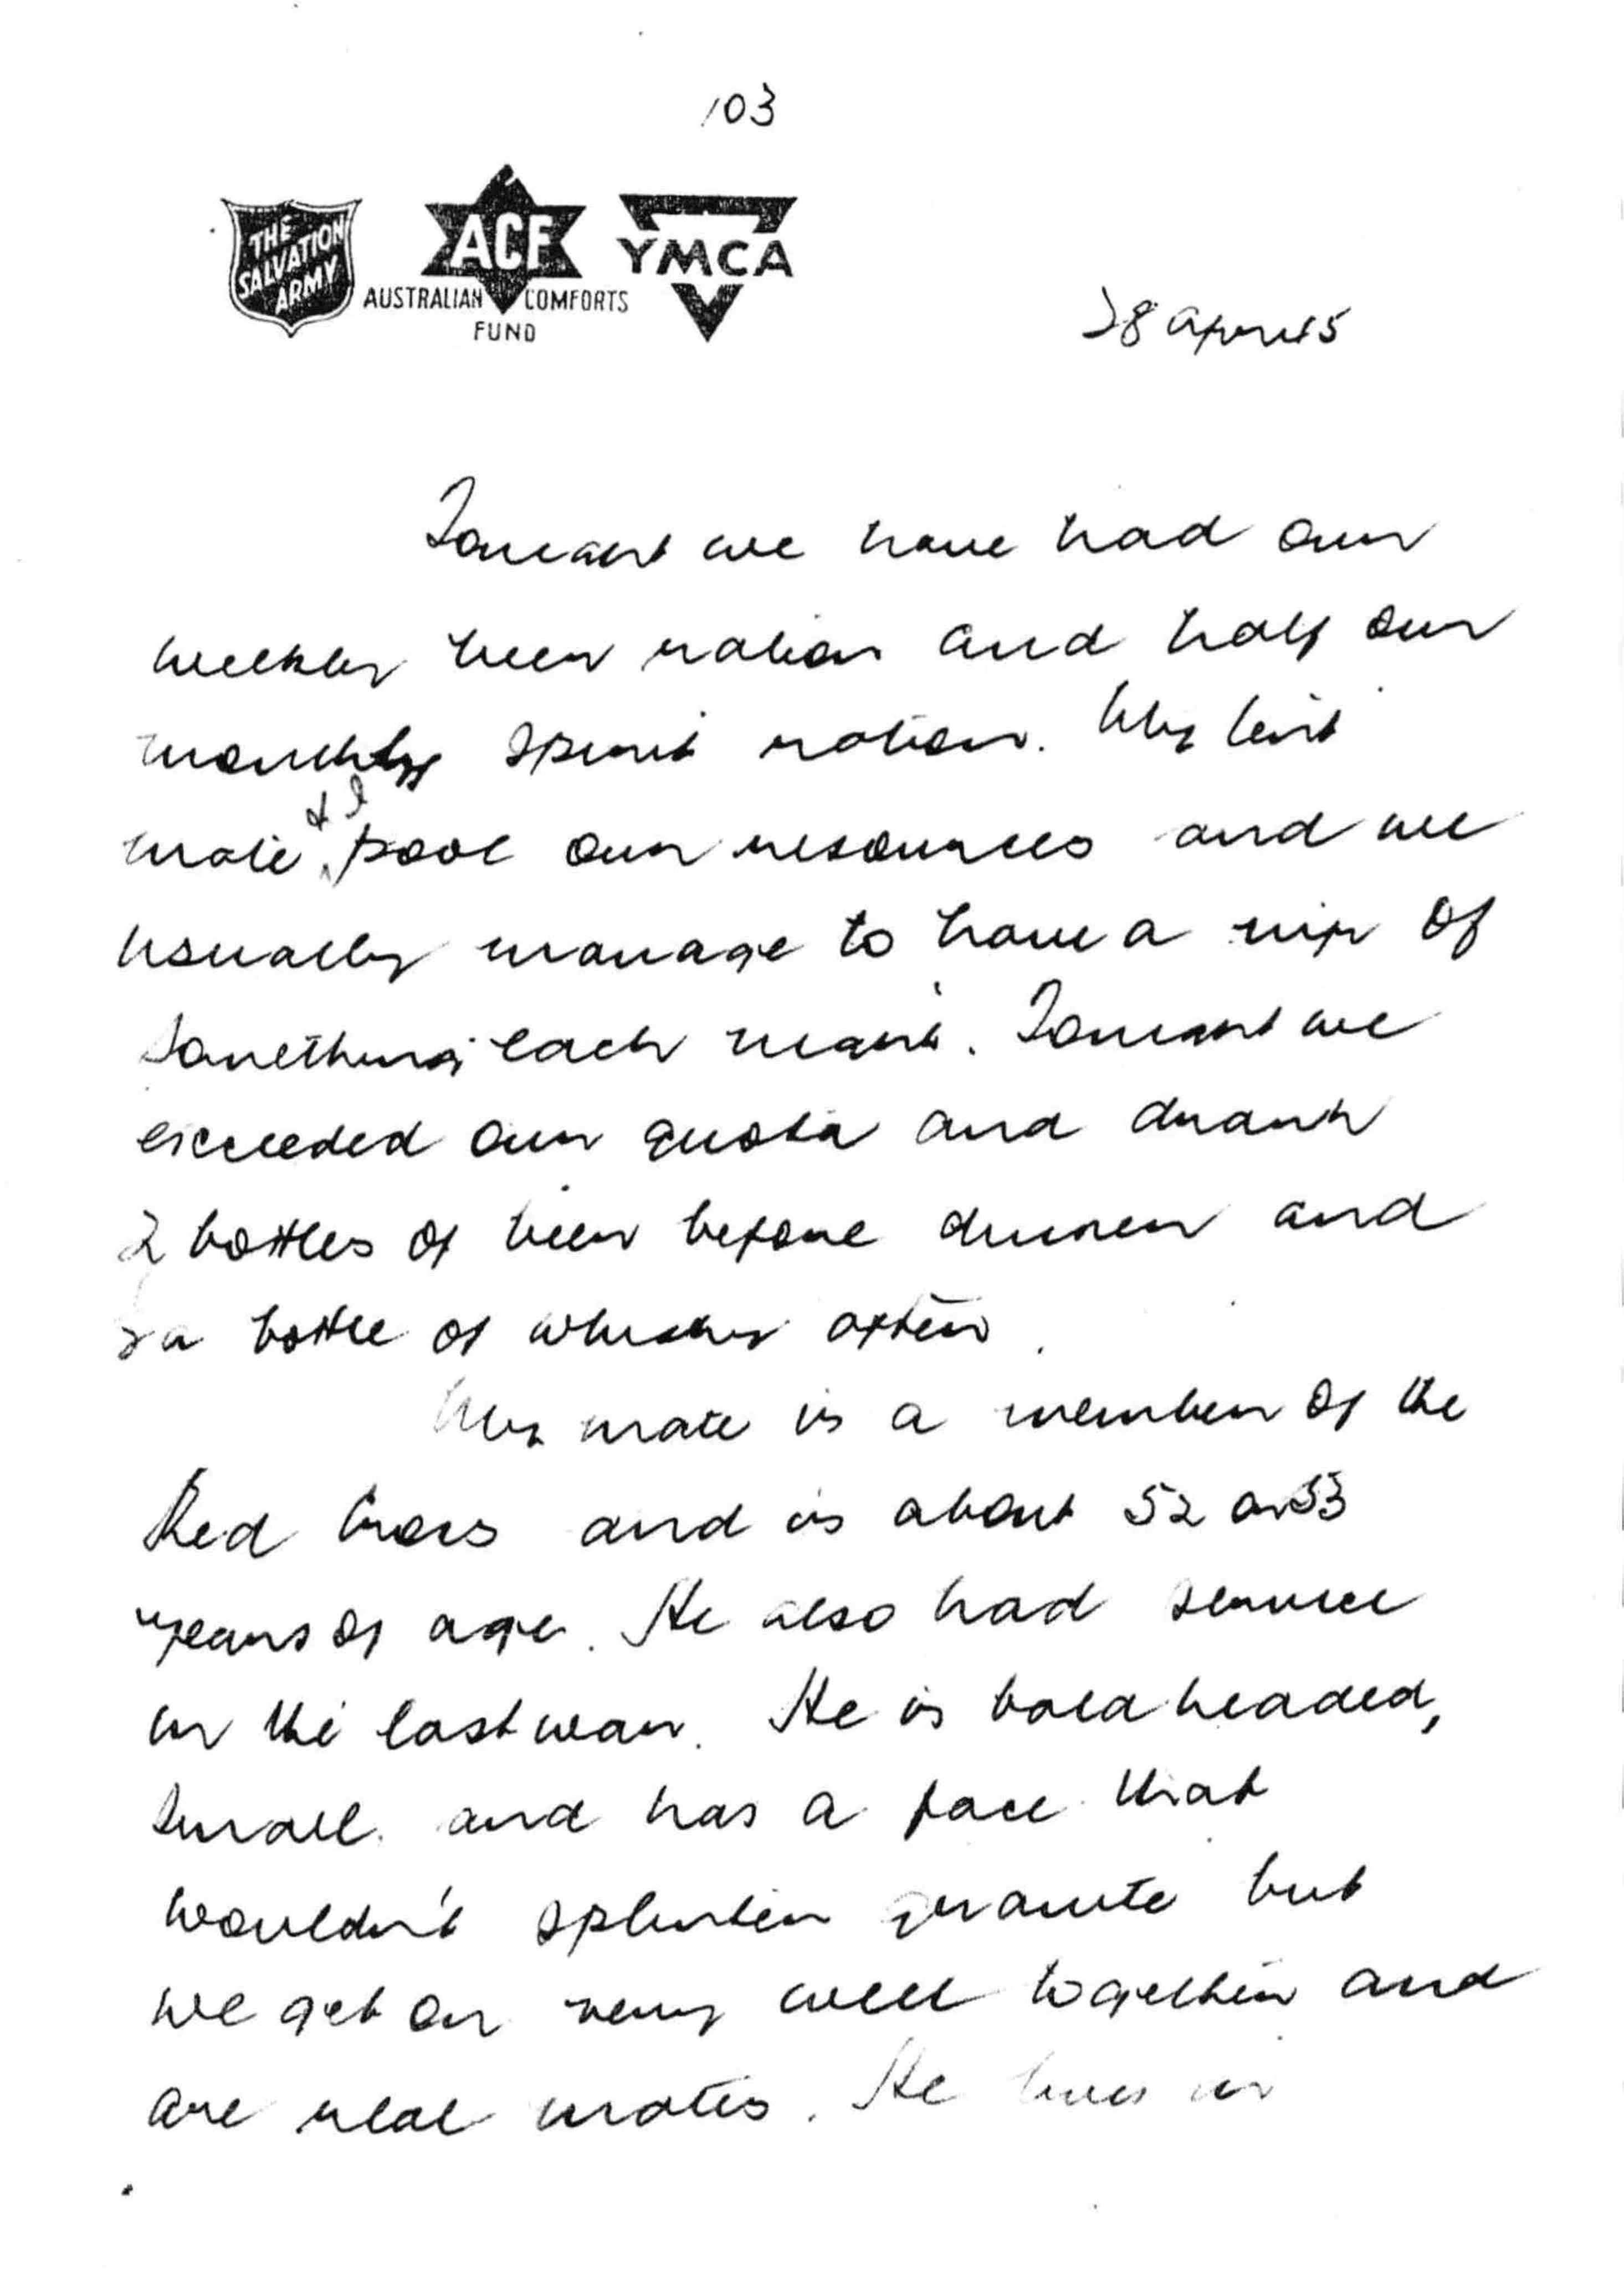 103
THE SALVATION ARMY
ACF
AUSTRALIAN COMFORTS FUND
YMCA
28 April 45
Tonight we have had our
weekly beer ration and half our
monthly spirit ration. My tent
mate & I pool our resources and we
usually manage to have a nip of
something each night. Tonight we
exceeded our quota and drank
2 bottles of beer before dinner and
a bottle of whisky after.
My mate is a member of the
Red Cross and is about 52 or 53
years of age. He also had service
in the last war. He is bald headed,
small and has a face that
wouldn't splinter granite but
we get on very well together and
are real mates. He lives in